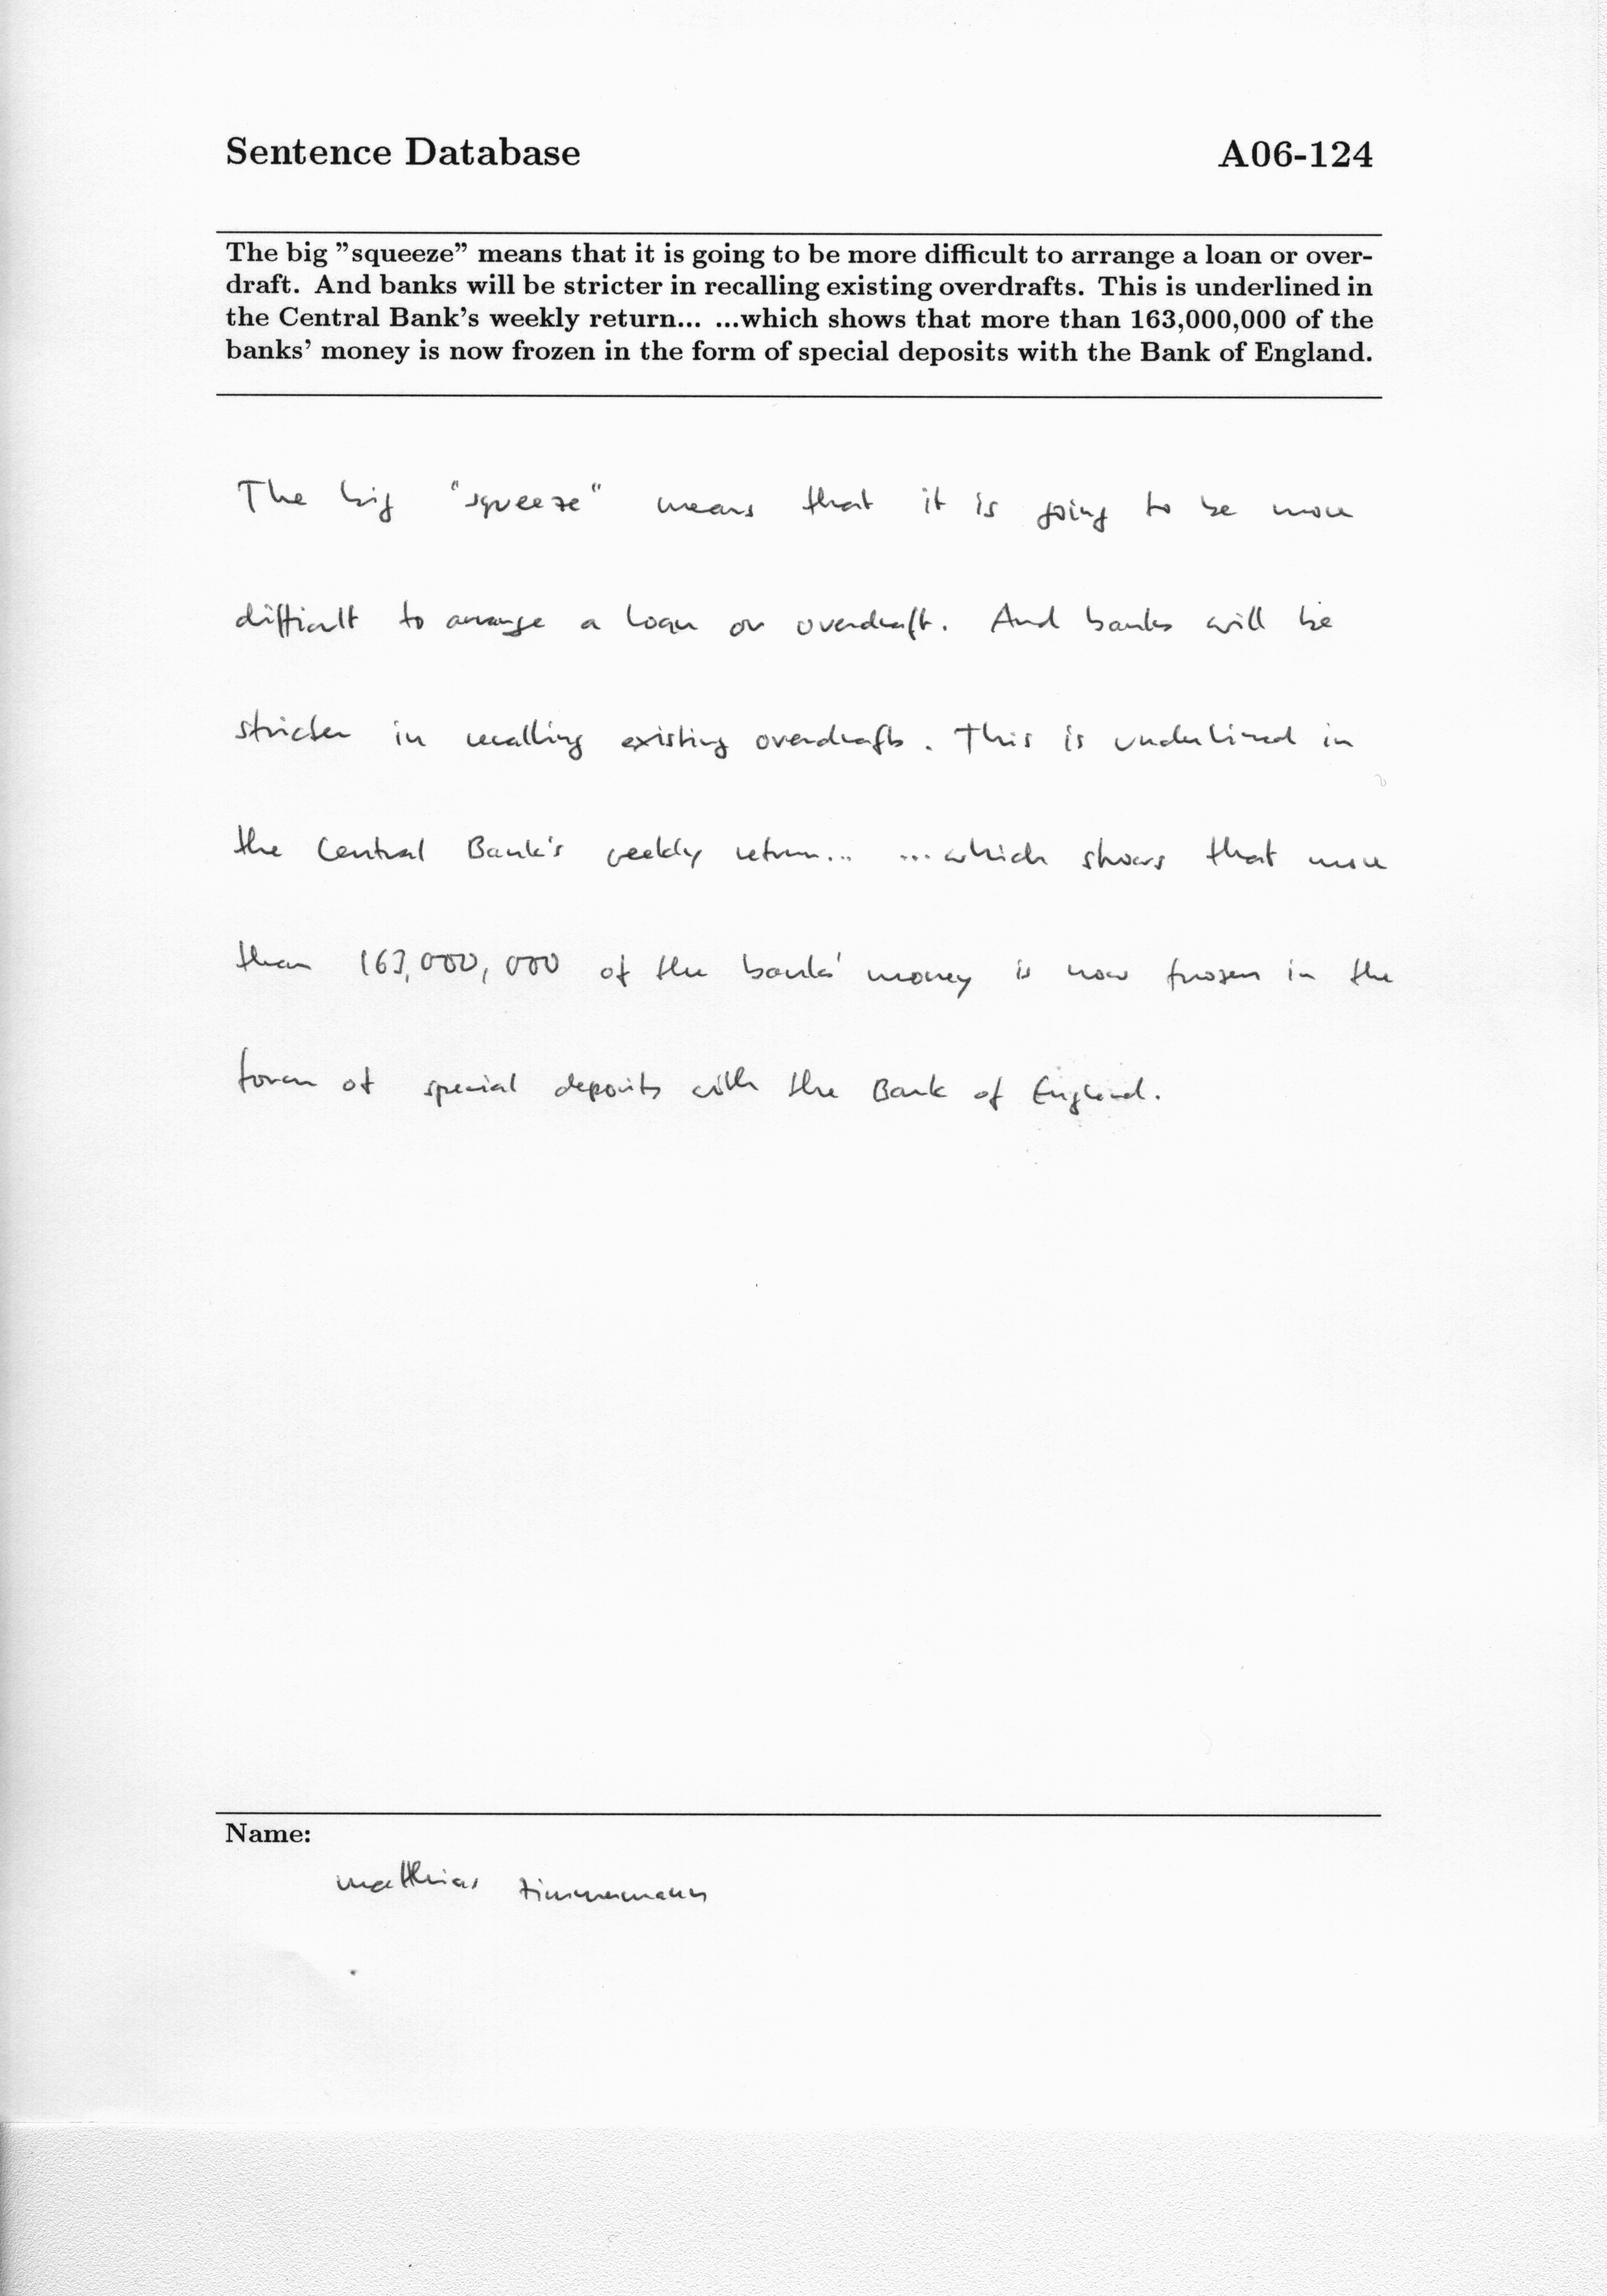 Sentence Database A06-124
The big "squeeze" means that it is going to be more difficult to arrange a loan or over-
draft. And banks will be stricter in recalling existing overdrafts. This is underlined in
the Central Bank's weekly return... ...which shows that more than 163,000,000 of the
banks' money is now frozen in the form of special deposits with the Bank of England.
The big "squeeze" means that it is going to be more
difficult to arrange a loan or overdraft. And banks will be
stricter in recalling existing overdrafts. This is underlined in
the Central Bank's weekly return... ...which shows that more
than 163,000,000 of the banks' money is now frozen in the
form of special deposits with the Bank of England.
Name:
Matthias Zimmermann